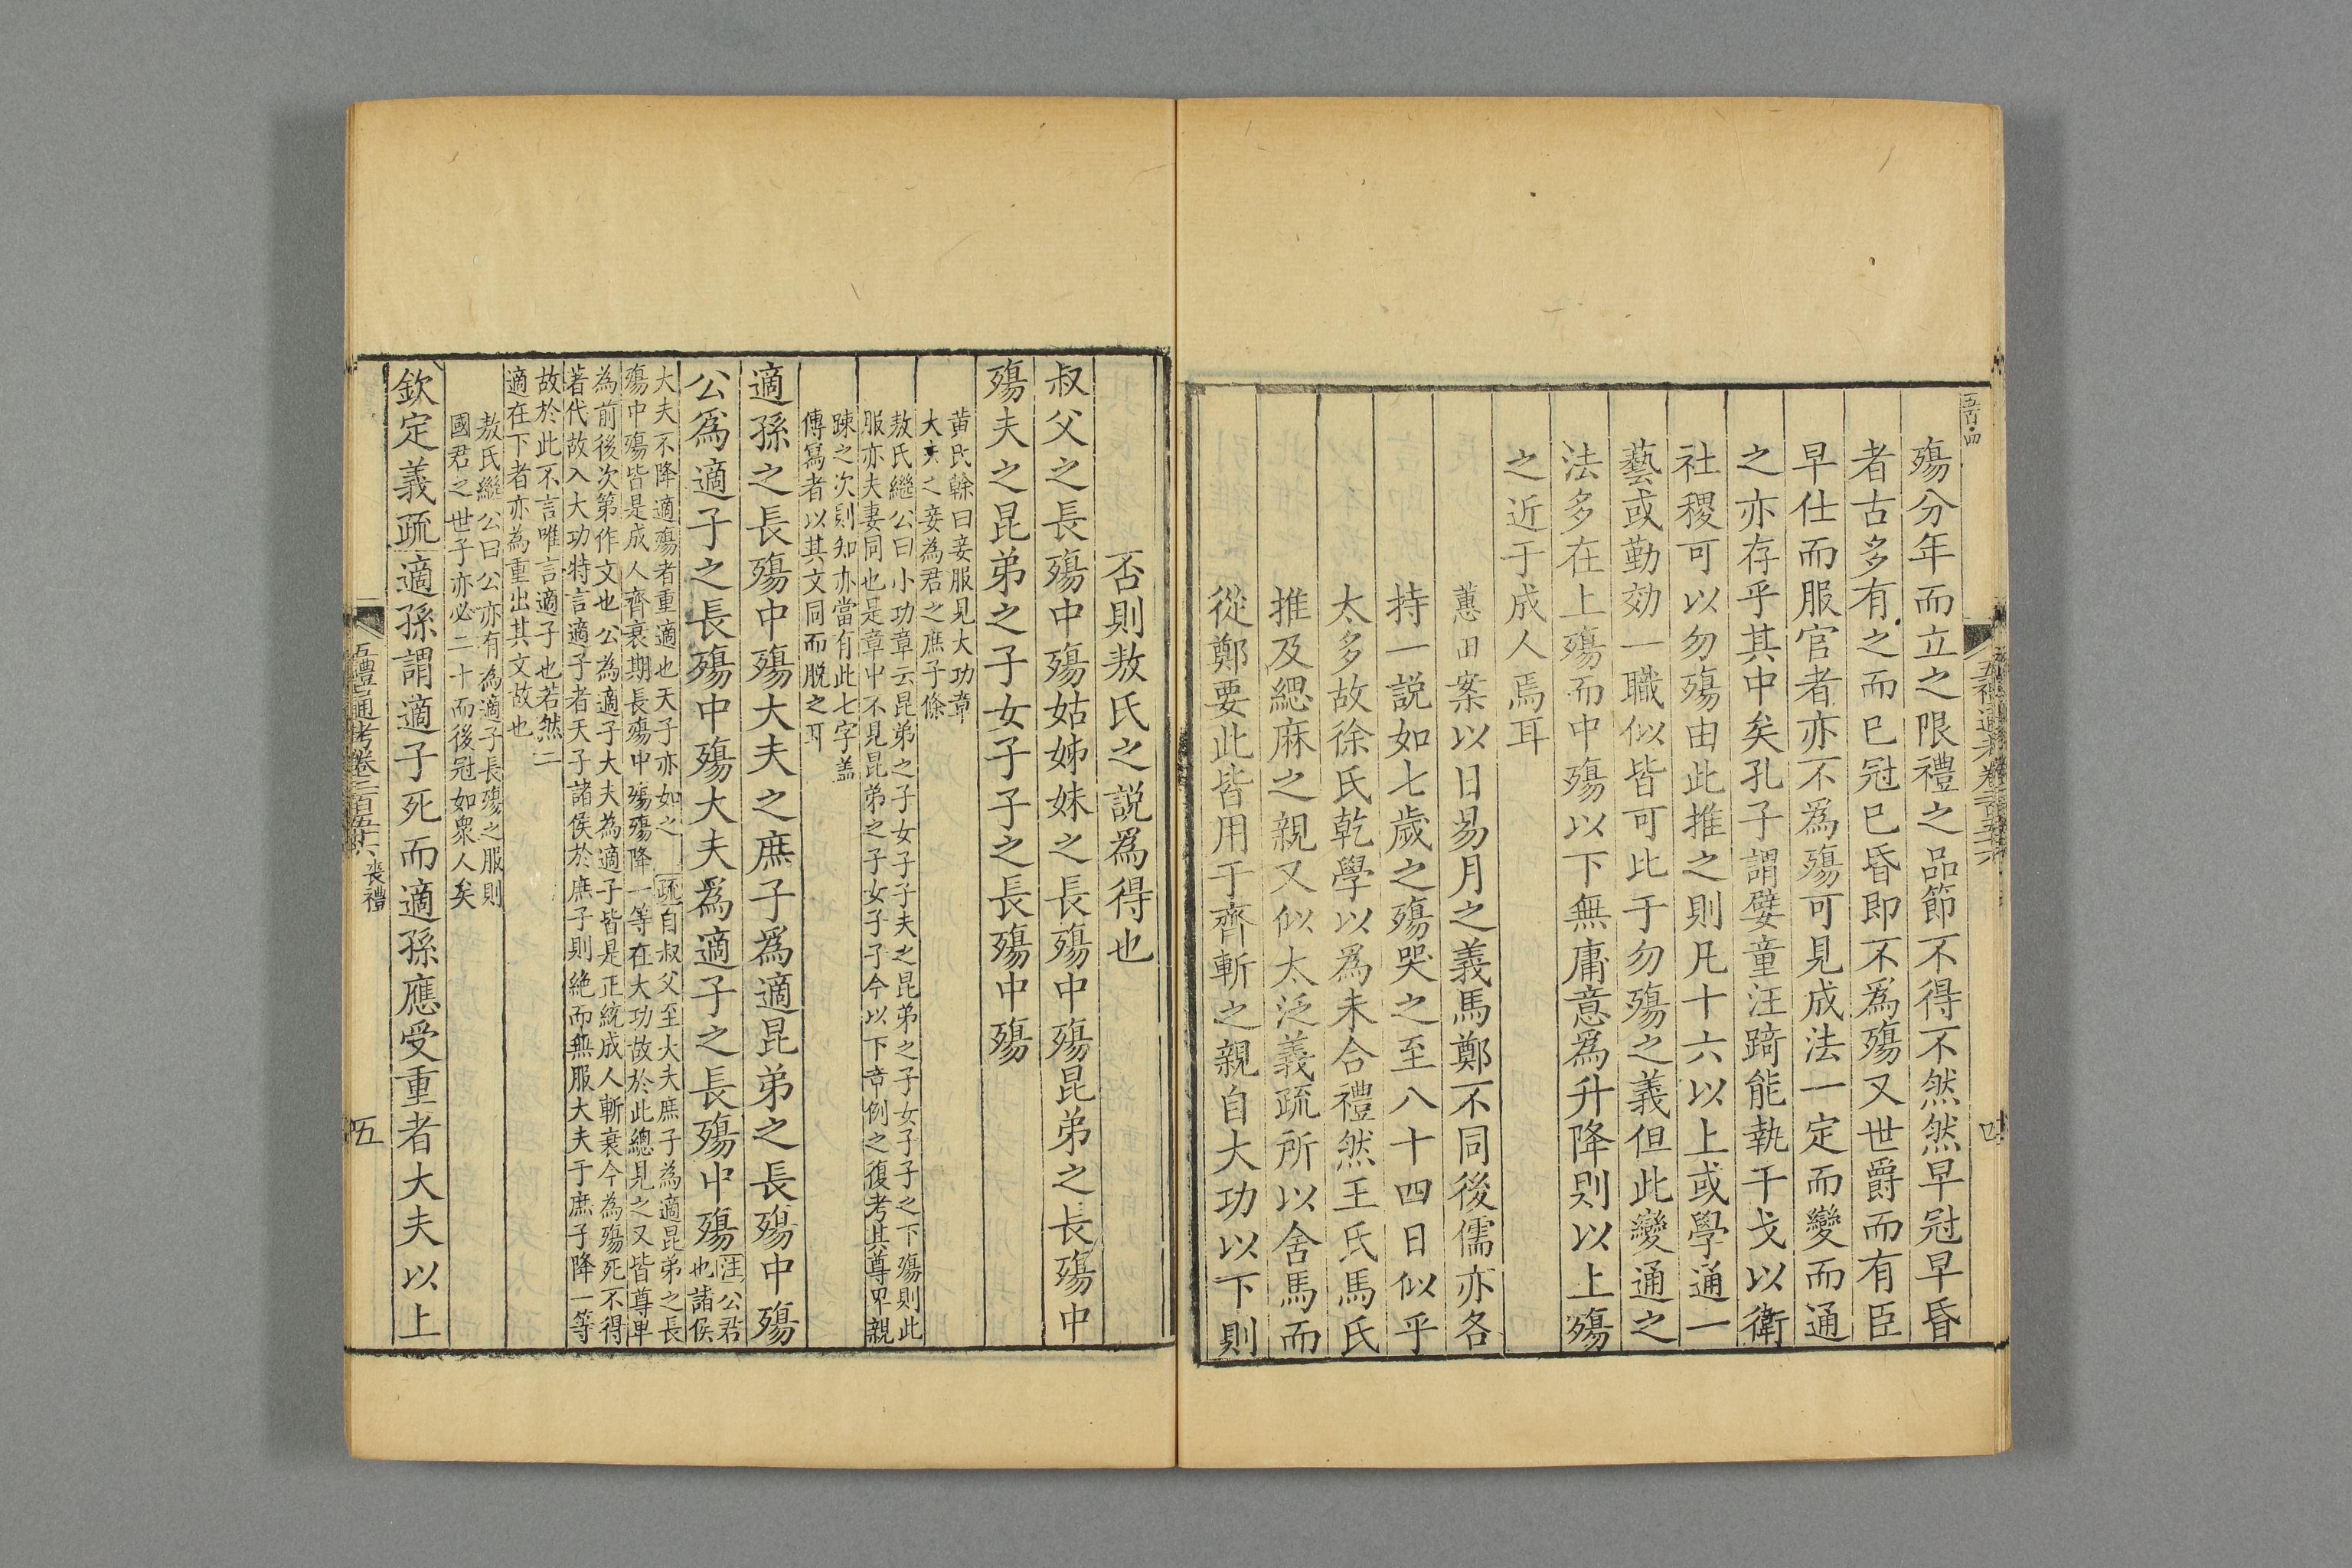 殤分年而立之限禮之品節不得不然然早冠早昏
者古多有之而已冠已昏即不為殤又世爵而有臣
早仕而服官者亦不為殤可見成法一定而變而通
之亦存乎其中矣孔子謂嬖童汪踦能執干戈以衛
社稷可以勿殤由此推之則凡十六以上或學通一
藝或勤効一職似皆可比于勿殤之義但此變通之
法多在上殤而中殤以下無庸意為升降則以上殤
之近于成人焉耳
蕙田案以日易月之義馬鄭不同後儒亦各
持一説如七歲之殤哭之至八十四日似乎
太多故徐氏乾學以為未合禮然王氏馬氏
推及緦麻之親又似太泛義疏所以舍馬而
從鄭要此皆用于齊斬之親自大功以下則
否則敖氏之説為得也
叔父之長殤中殤姑姊妹之長殤中殤昆弟之長殤中
殤夫之昆弟之子女子子之長殤中殤
黄氏榦曰妾服見大功章
大夫之妾為君之庶子條
敖氏繼公曰小功章云昆弟之子女子子夫之昆弟之子女子子之下殤則此
服亦夫妻同也是章中不見昆弟之子女子子今以下章例之復考其尊卑親
踈之次則知亦當有此七字盖
傳寫者以其文同而脱之耳
適孫之長殤中殤大夫之庶子為適昆弟之長殤中殤
公為適子之長殤中殤大夫為適子之長殤中殤
注公君
也諸侯
大夫不降適殤者重適也天子亦如之 疏自叔父至大夫庶子為適昆弟之長
殤中殤皆是成人齊衰期長殤中殤殤降一等在大功故於此總見之又皆尊卑
為前後次第作文也 公為適子大夫為適子皆是正統成人斬衰今為殤死不得
著代故入大功特言適子者天子諸侯於庶子則絶而無服大夫于庶子降一等
故於此不言唯言適子也若然二
適在下者亦為重出其文故也
敖氏繼公曰公亦有為適子長殤之服則
國君之世子亦必二十而後冠如衆人矣
欽定義疏適孫謂適子死而適孫應受重者大夫以上
五禮通考卷二百五十六 喪禮
五